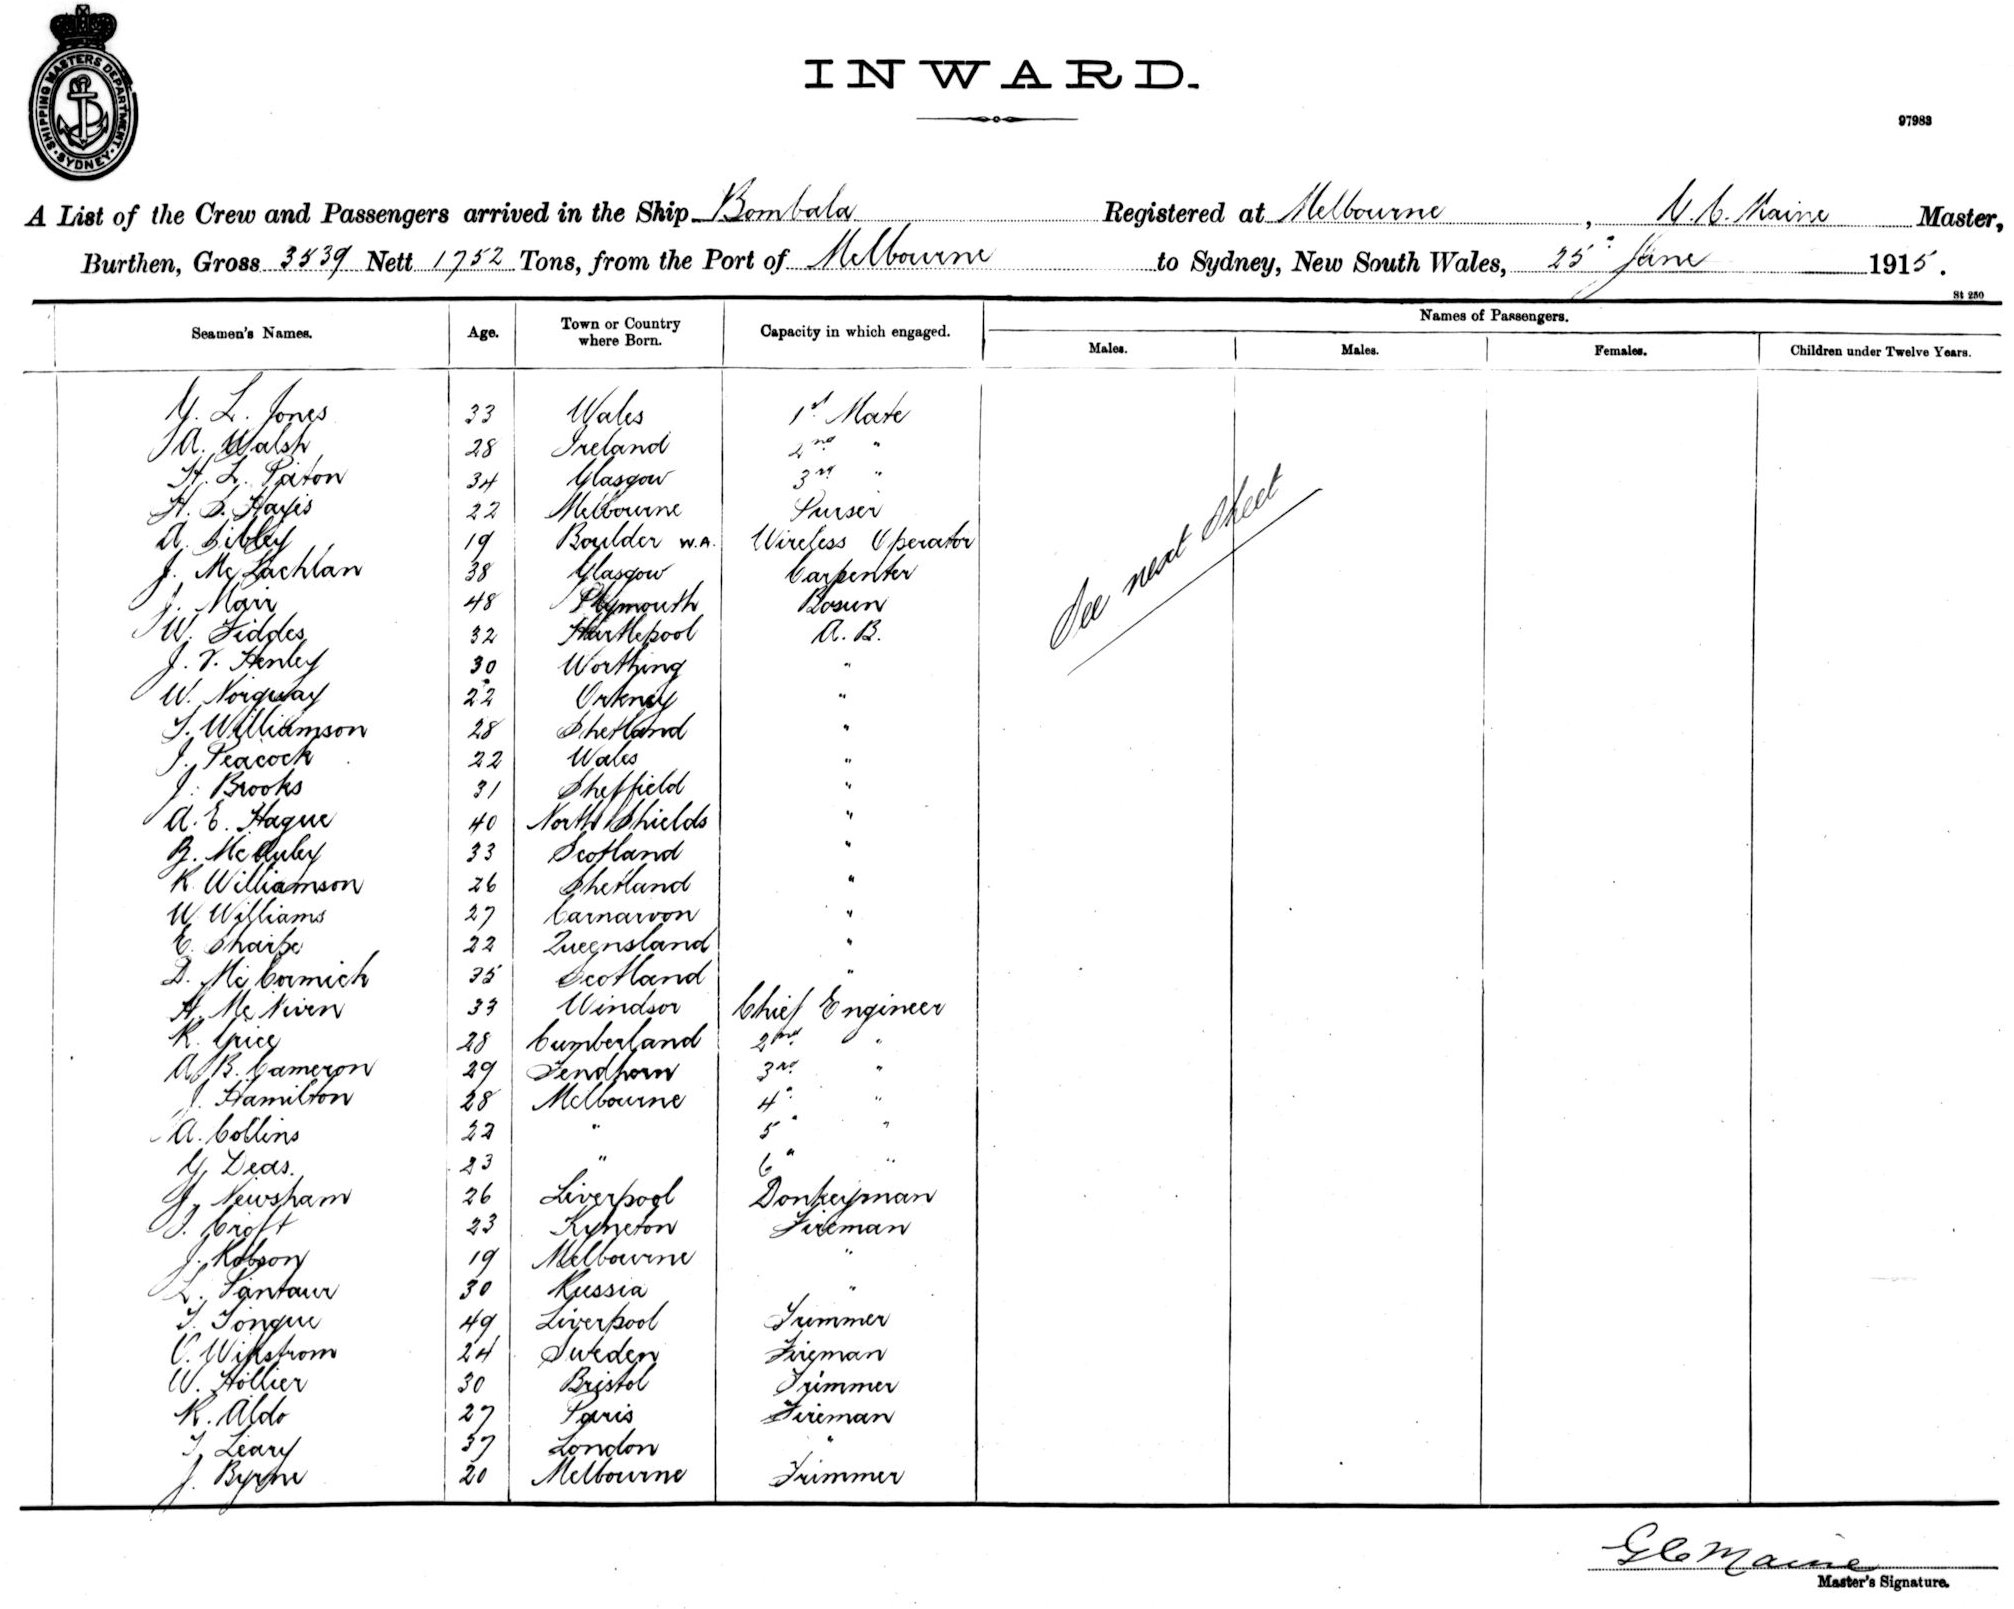 SHIPPING MASTERS DEPARTMENT SYDNEY
INWARD.
97983
A List of the Crew and Passengers arrived in the Ship Bombala Registered at Melbourne, G. C. Maine Master,
Burthen, Gross 3539 Nett 1752 Tons, from the Port of Melbourne to Sydney, New South Wales, 25" June 1915.
St 250
Seamen's Names. Age. Town or Country where Born. Capacity in which engaged. Names of Passengers.
Males. Males. Females. Children under Twelve Years.
G. L. Jones 33 Wales 1st Mate
A. Walsh 28 Ireland 2nd "
H. L. Paton 34 Glasgow 3rd "
H. S. Hayis 22 Melbourne Purser
A. Sibley 19 Boulder W.A. Wireless Operator
J. McLachlan 38 Glasgow Carpenter
J. Mair 48 Plymouth Bosun
W. Fiddes 32 Hartlepool A. B.
J. V. Henley 30 Worthing "
W. Norquay 22 Orkney "
T. Williamson 28 Shetland "
J. Peacock 22 Wales "
J. Brooks 31 Sheffield "
A. E. Hague 40 North Shields "
McAuley 33 Scotland "
R. Williamson 26 Shetland "
W. Williams 27 Carnarvon "
E. Sharpe 22 Queensland "
D. McCormick 35 Scotland "
H. McNiven 33 Windsor Chief Engineer
R. Grice 28 Cumberland 2nd "
A. B. Cameron 29 Fendhorn 3rd "
J. Hamilton 28 Melbourne 4" "
A. Collins 22 " 5" "
G. Deas. 23 " 6" "
J. Newsham 26 Liverpool Donkeyman
T. Croft 23 Kyneton Fireman
J. Robson 19 Melbourne "
L. Pantaur 30 Russia "
T. Tongue 49 Liverpool Trimmer
O. Wikstrom 24 Sweden Fireman
W. Hollier 30 Bristol Trimmer
R. Aldo 27 Paris Fireman
T. Leary 37 London "
J. Byrne 20 Melbourne Trimmer
See next sheet
G C Maine
Master's Signature.